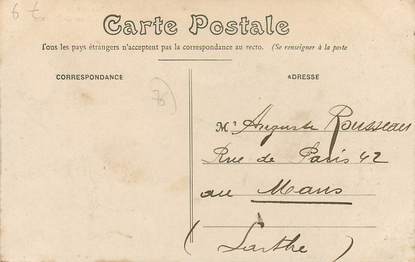 6 €
Carte Postale
Tous les pays étrangers n'acceptent pas la correspondance au recto. (Se renseigner à la poste
CORRESPONDANCE
ADRESSE
Mr Auguste Rousseau
Rue de Paris 42
au Mans
(Sarthe)